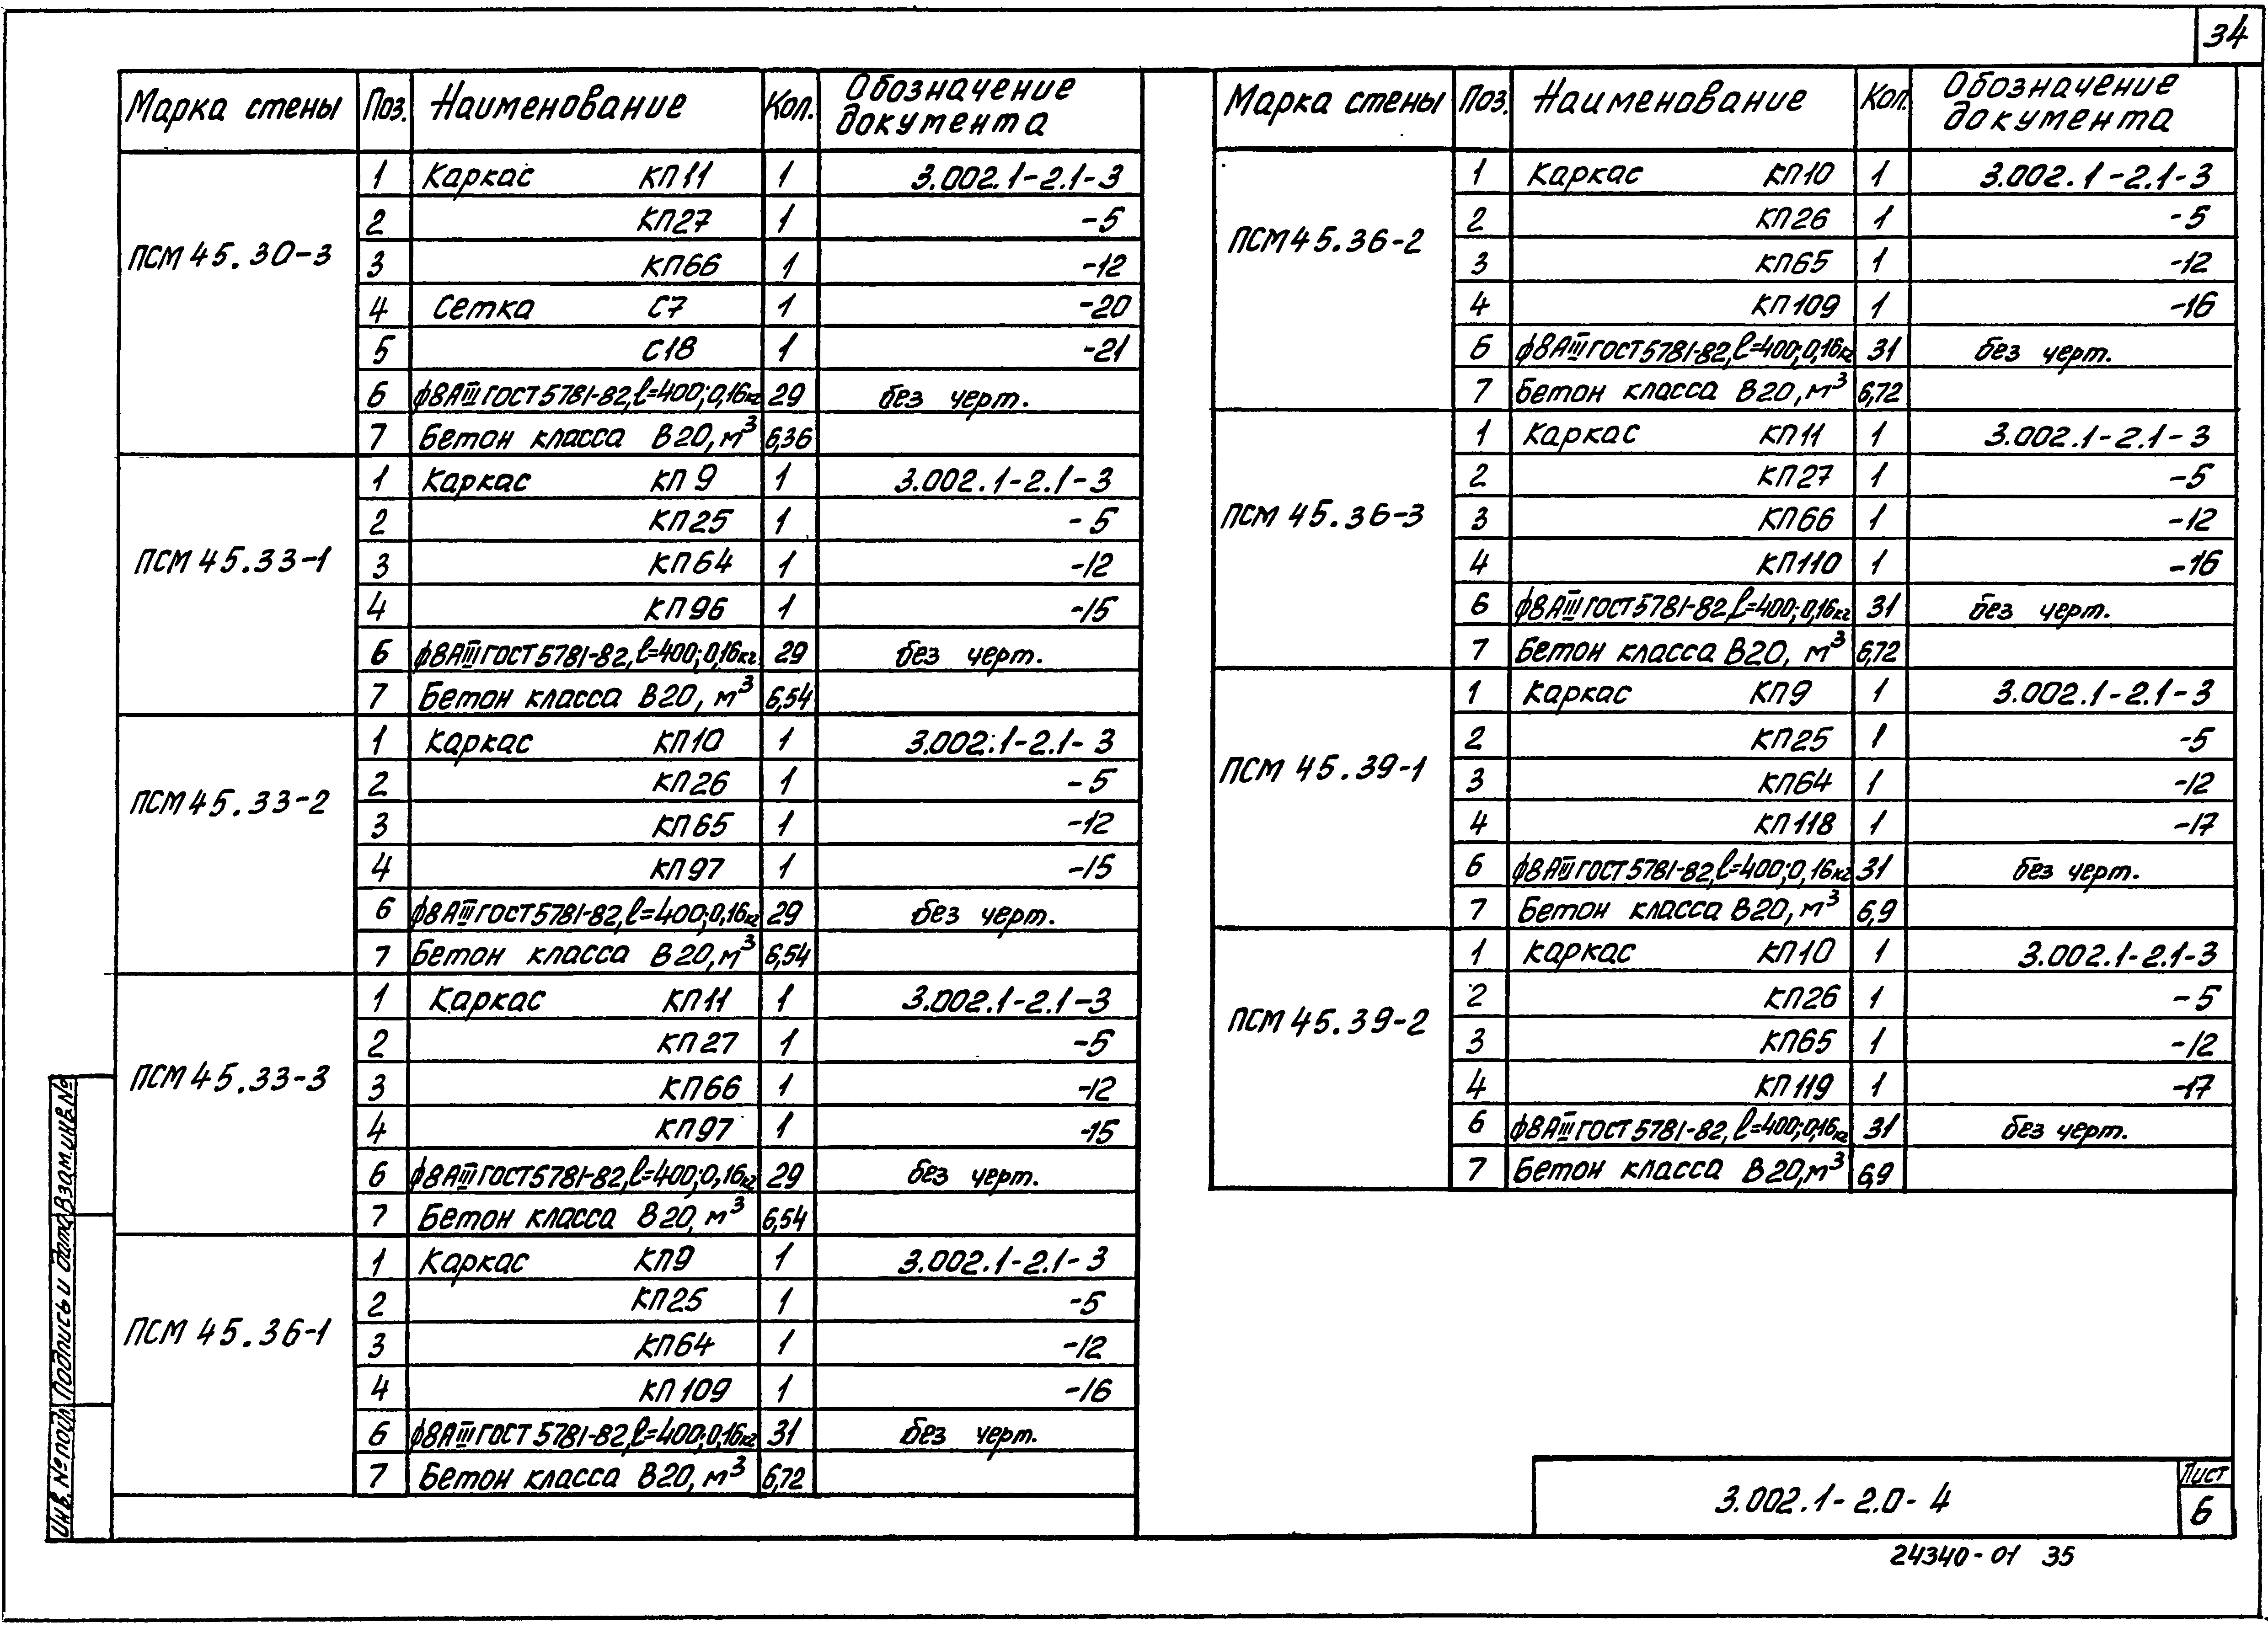 34
Марка стены Поз. Наименование Кол. Обозначение документа
ПСМ 45.30-3
1 Каркас КП11 1 3.002.1-2.1-3
2 КП27 1 -5
3 КП66 1 -12
4 Сетка С7 1 -20
5 С18 1 -21
6 ф8АIII ГОСТ 5781-82, ℓ=400; 0,16кг 29 без черт.
7 Бетон класса В20, м³ 6,36
ПСМ 45.33-1
1 Каркас КП9 1 3.002.1-2.1-3
2 КП25 1 -5
3 КП64 1 -12
4 КП96 1 -15
6 ф8АIII ГОСТ 5781-82, ℓ=400; 0,16кг 29 без черт.
7 Бетон класса В20, м³ 6,54
ПСМ 45.33-2
1 Каркас КП10 1 3.002.1-2.1-3
2 КП26 1 -5
3 КП65 1 -12
4 КП97 1 -15
6 ф8АIII ГОСТ 5781-82, ℓ=400; 0,16кг 29 без черт.
7 Бетон класса В20, м³ 6,54
ПСМ 45.33-3
1 Каркас КП11 1 3.002.1-2.1-3
2 КП27 1 -5
3 КП66 1 -12
4 КП97 1 -15
6 ф8АIII ГОСТ 5781-82, ℓ=400; 0,16кг 29 без черт.
7 Бетон класса В20, м³ 6,54
ПСМ 45.36-1
1 Каркас КП9 1 3.002.1-2.1-3
2 КП25 1 -5
3 КП64 1 -12
4 КП109 1 -16
6 ф8АIII ГОСТ 5781-82, ℓ=400; 0,16кг 31 без черт.
7 Бетон класса В20, м³ 6,72
Марка стены Поз. Наименование Кол. Обозначение документа
ПСМ 45.36-2
1 Каркас КП10 1 3.002.1-2.1-3
2 КП26 1 -5
3 КП65 1 -12
4 КП109 1 -16
6 ф8АIII ГОСТ 5781-82, ℓ=400; 0,16кг 31 без черт.
7 Бетон класса В20, м³ 6,72
ПСМ 45.36-3
1 Каркас КП11 1 3.002.1-2.1-3
2 КП27 1 -5
3 КП66 1 -12
4 КП110 1 -16
6 ф8АIII ГОСТ 5781-82, ℓ=400; 0,16кг 31 без черт.
7 Бетон класса В20, м³ 6,72
ПСМ 45.39-1
1 Каркас КП9 1 3.002.1-2.1-3
2 КП25 1 -5
3 КП64 1 -12
4 КП118 1 -17
6 ф8АIII ГОСТ 5781-82, ℓ=400; 0,16кг 31 без черт.
7 Бетон класса В20, м³ 6,9
ПСМ 45.39-2
1 Каркас КП10 1 3.002.1-2.1-3
2 КП26 1 -5
3 КП65 1 -12
4 КП119 1 -17
6 ф8АIII ГОСТ 5781-82, ℓ=400; 0,16кг 31 без черт.
7 Бетон класса В20, м³ 6,9
Инв. № подл. Подпись и дата Взам. инв. №
3.002.1-2.0-4
Лист
6
24340-01 35